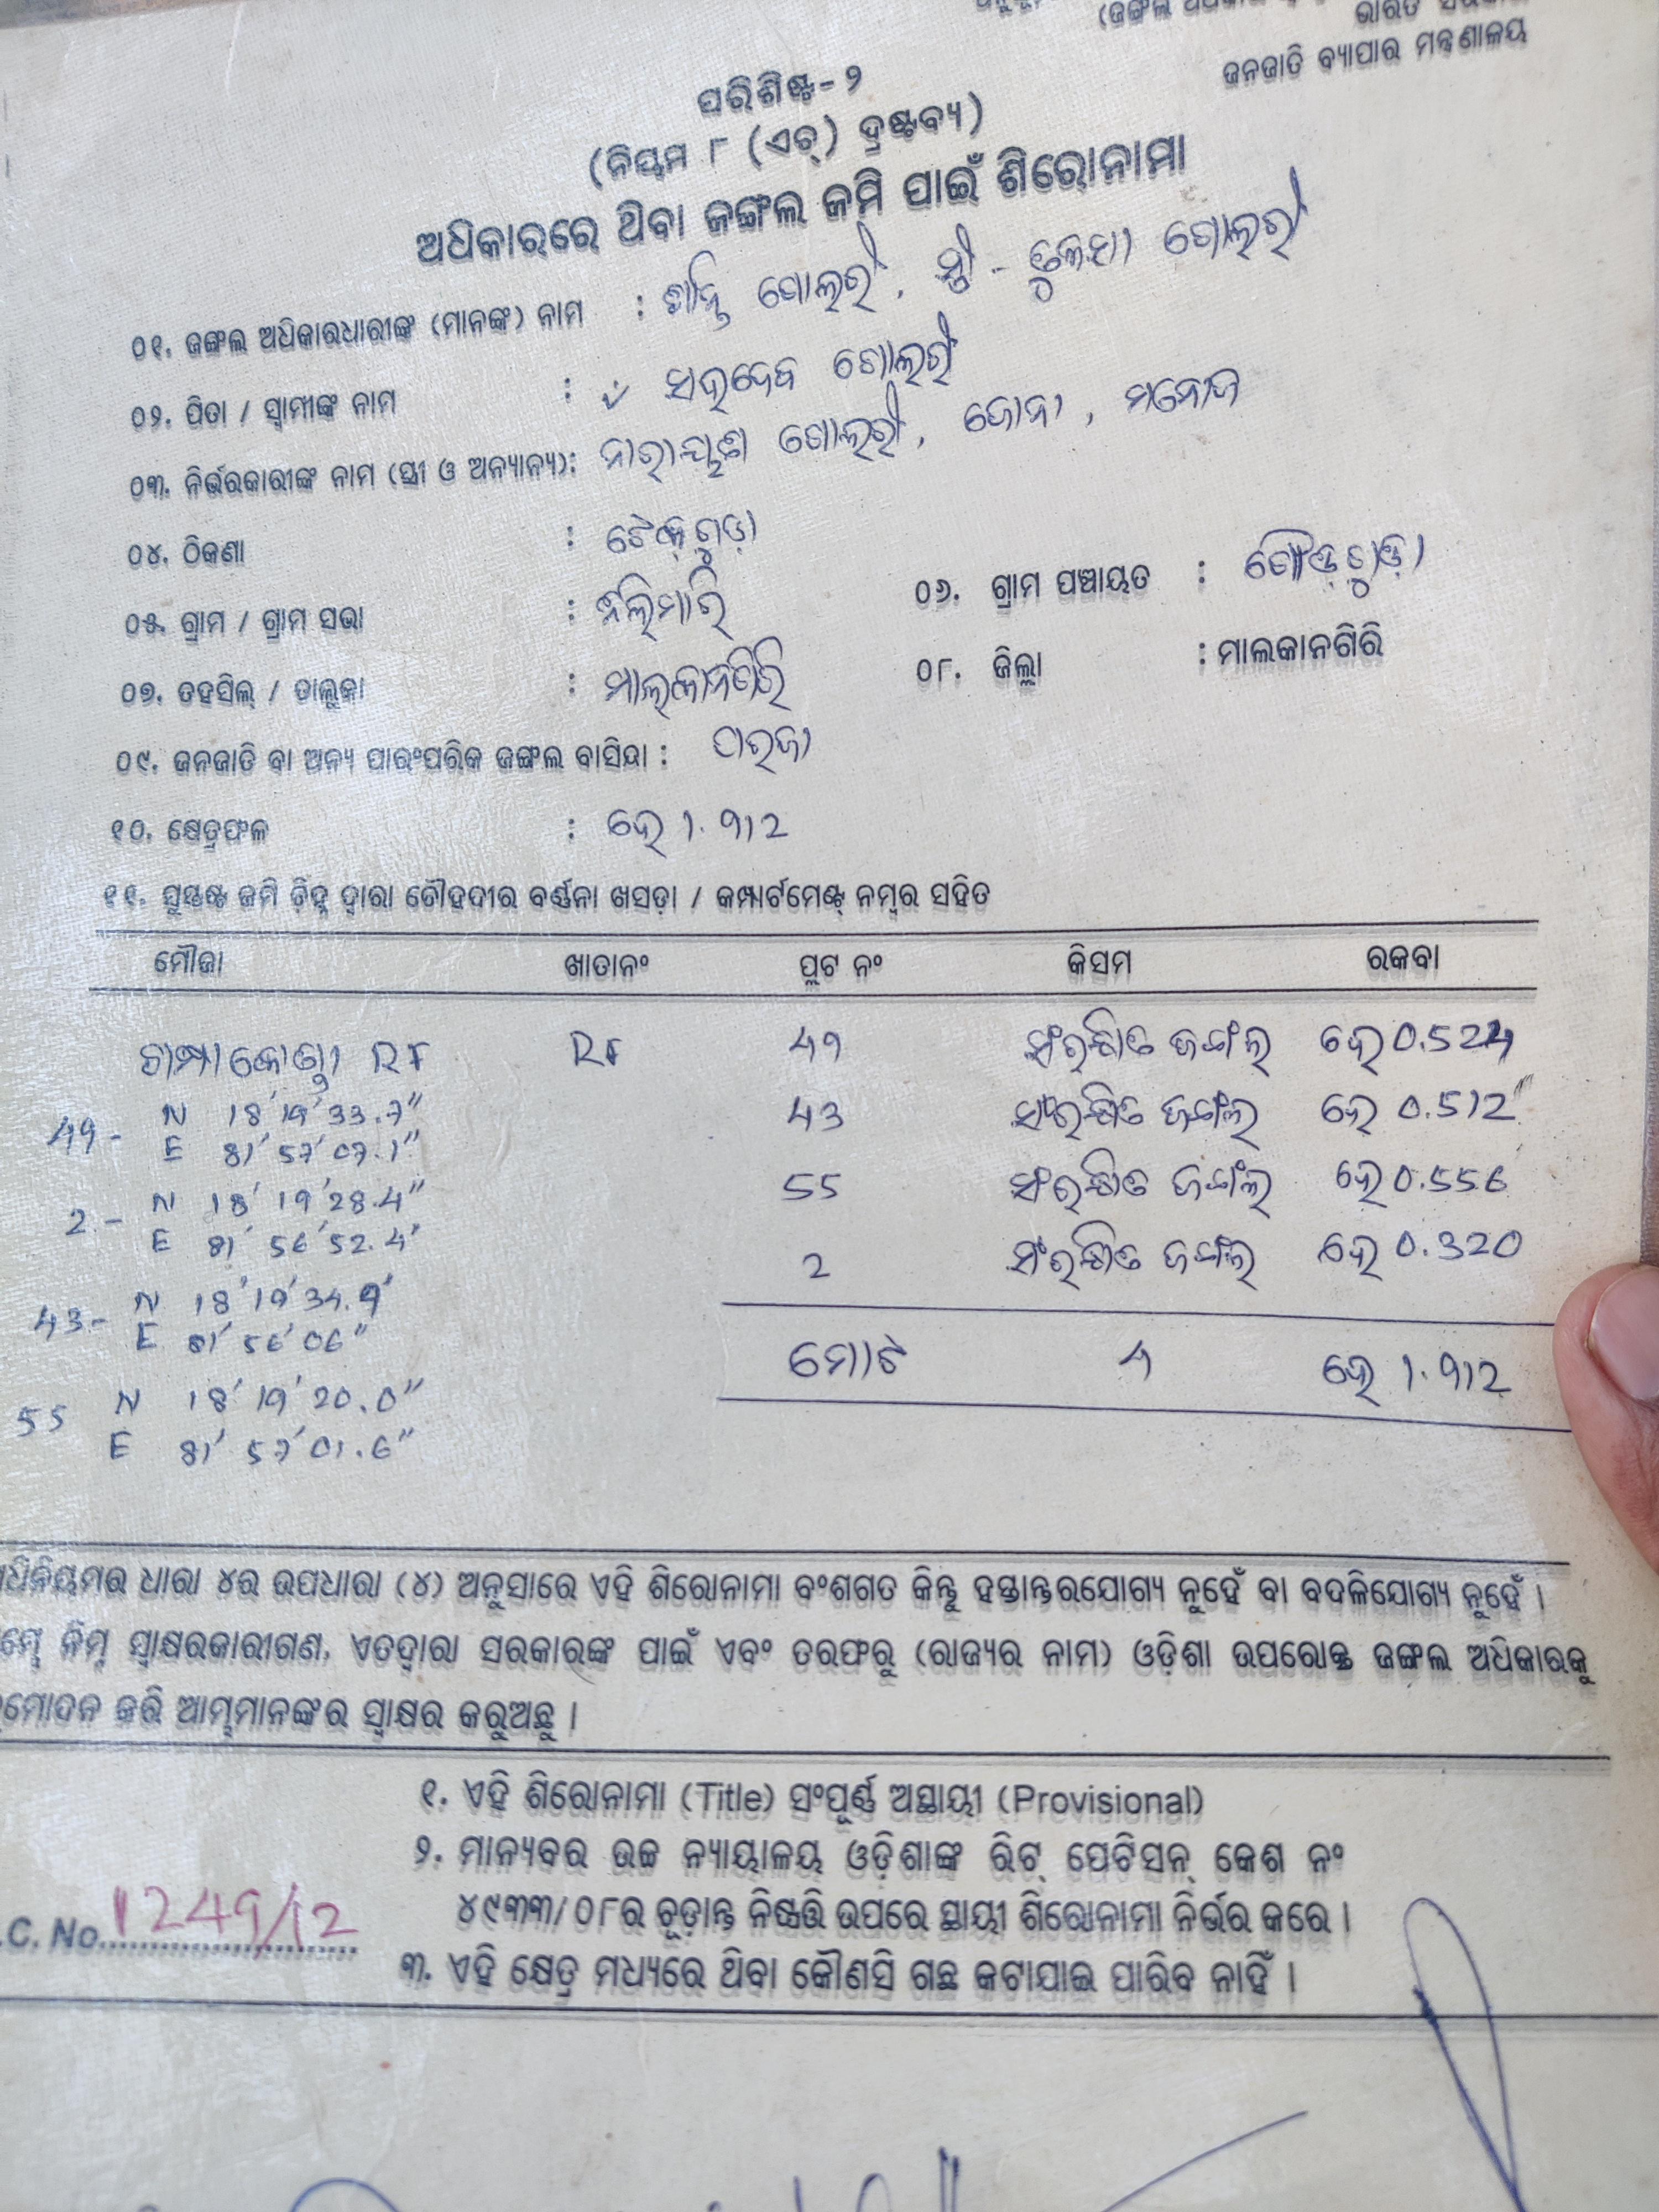 ଭାରତ ସରକାର
ଜନଜାତି ବ୍ୟାପାର ମନ୍ତ୍ରଣାଳୟ
ପରିଶିଷ୍ଟ-୨
(ନିୟମ ୮ (ଏଚ୍) ଦ୍ରଷ୍ଟବ୍ୟ)
ଅଧିକାରରେ ଥିବା ଜଙ୍ଗଲ ଜମି ପାଇଁ ଶିରୋନାମା
୦୧. ଜଙ୍ଗଲ ଅଧିକାରଧାରୀଙ୍କ (ମାନଙ୍କ) ନାମ : ଶାନ୍ତି ଗୋଲରୀ, ସ୍ତ୍ରୀ - ତୁଳସା ଗୋଲରୀ
୦୨. ପିତା / ସ୍ୱାମୀଙ୍କ ନାମ : ସହଦେବ ଗୋଲରୀ
୦୩. ନିର୍ଭରକାରୀଙ୍କ ନାମ (ସ୍ତ୍ରୀ ଓ ଅନ୍ୟାନ୍ୟ): ନାରାୟଣ ଗୋଲରୀ, ଜୋନା, ମନୋଜ
୦୪. ଠିକଣା : ଟେକ୍‌ଗୁଡ଼ା
୦୫. ଗ୍ରାମ / ଗ୍ରାମ ସଭା : ନିଲିମାରି ୦୬. ଗ୍ରାମ ପଞ୍ଚାୟତ : ଗୌଡ୍‌ଗୁଡ଼ା
୦୭. ତହସିଲ୍ / ତାଲୁକା : ମାଲକାନଗିରି ୦୮. ଜିଲ୍ଲା : ମାଲକାନଗିରି
୦୯. ଜନଜାତି ବା ଅନ୍ୟ ପାରଂପରିକ ଜଙ୍ଗଲ ବାସିନ୍ଦା : ପରଜା
୧୦. କ୍ଷେତ୍ରଫଳ : ହେ 1.912
୧୧. ସୁସ୍ପଷ୍ଟ ଜମି ଚିହ୍ନ ଦ୍ୱାରା ଚୌହଦୀର ବର୍ଣ୍ଣନା ଖସଡ଼ା / କମ୍ପାର୍ଟମେଣ୍ଟ୍ ନମ୍ବର ସହିତ
ମୌଜା ଖାତାନଂ ପ୍ଲଟ ନଂ କିସମ ରକବା
ଚାମ୍ପାକୋଣ୍ଡା RF RF 49 ସଂରକ୍ଷିତ ଜଙ୍ଗଲ ହେ 0.524
49 - N 18' 19' 33.7" 43 ସଂରକ୍ଷିତ ଜଙ୍ଗଲ ହେ 0.512
E 81' 57' 07.1"
2 - N 18' 19' 28.4" 55 ସଂରକ୍ଷିତ ଜଙ୍ଗଲ ହେ 0.556
E 81' 56' 52.4' 2 ସଂରକ୍ଷିତ ଜଙ୍ଗଲ ହେ 0.320
43 - N 18' 19' 34.9'
E 81' 56' 06" ମୋଟ 4 ହେ 1.912
55 N 18' 19' 20.0"
E 81' 57' 01.6"
ଧିନିୟମର ଧାରା ୪ର ଉପଧାରା (୪) ଅନୁସାରେ ଏହି ଶିରୋନାମା ବଂଶଗତ କିନ୍ତୁ ହସ୍ତାନ୍ତରଯୋଗ୍ୟ ନୁହେଁ ବା ବଦଳିଯୋଗ୍ୟ ନୁହେଁ ।
ମ୍ଭେ ନିମ୍ନ ସ୍ୱାକ୍ଷରକାରୀଗଣ, ଏତଦ୍ୱାରା ସରକାରଙ୍କ ପାଇଁ ଏବଂ ତରଫରୁ (ରାଜ୍ୟର ନାମ) ଓଡ଼ିଶା ଉପରୋକ୍ତ ଜଙ୍ଗଲ ଅଧିକାରକୁ
ମୋଦନ କରି ଆମ୍ଭମାନଙ୍କର ସ୍ୱାକ୍ଷର କରୁଅଛୁ ।
୧. ଏହି ଶିରୋନାମା (Title) ସଂପୂର୍ଣ୍ଣ ଅସ୍ଥାୟୀ (Provisional)
୨. ମାନ୍ୟବର ଉଚ୍ଚ ନ୍ୟାୟାଳୟ ଓଡ଼ିଶାଙ୍କ ରିଟ୍ ପେଟିସନ୍ କେଶ ନଂ
୪୯୩୩/୦୮ର ଚୂଡ଼ାନ୍ତ ନିଷ୍ପତ୍ତି ଉପରେ ସ୍ଥାୟୀ ଶିରୋନାମା ନିର୍ଭର କରେ ।
.C. No. 1249/12
୩. ଏହି କ୍ଷେତ୍ର ମଧ୍ୟରେ ଥିବା କୌଣସି ଗଛ କଟାଯାଇ ପାରିବ ନାହିଁ ।